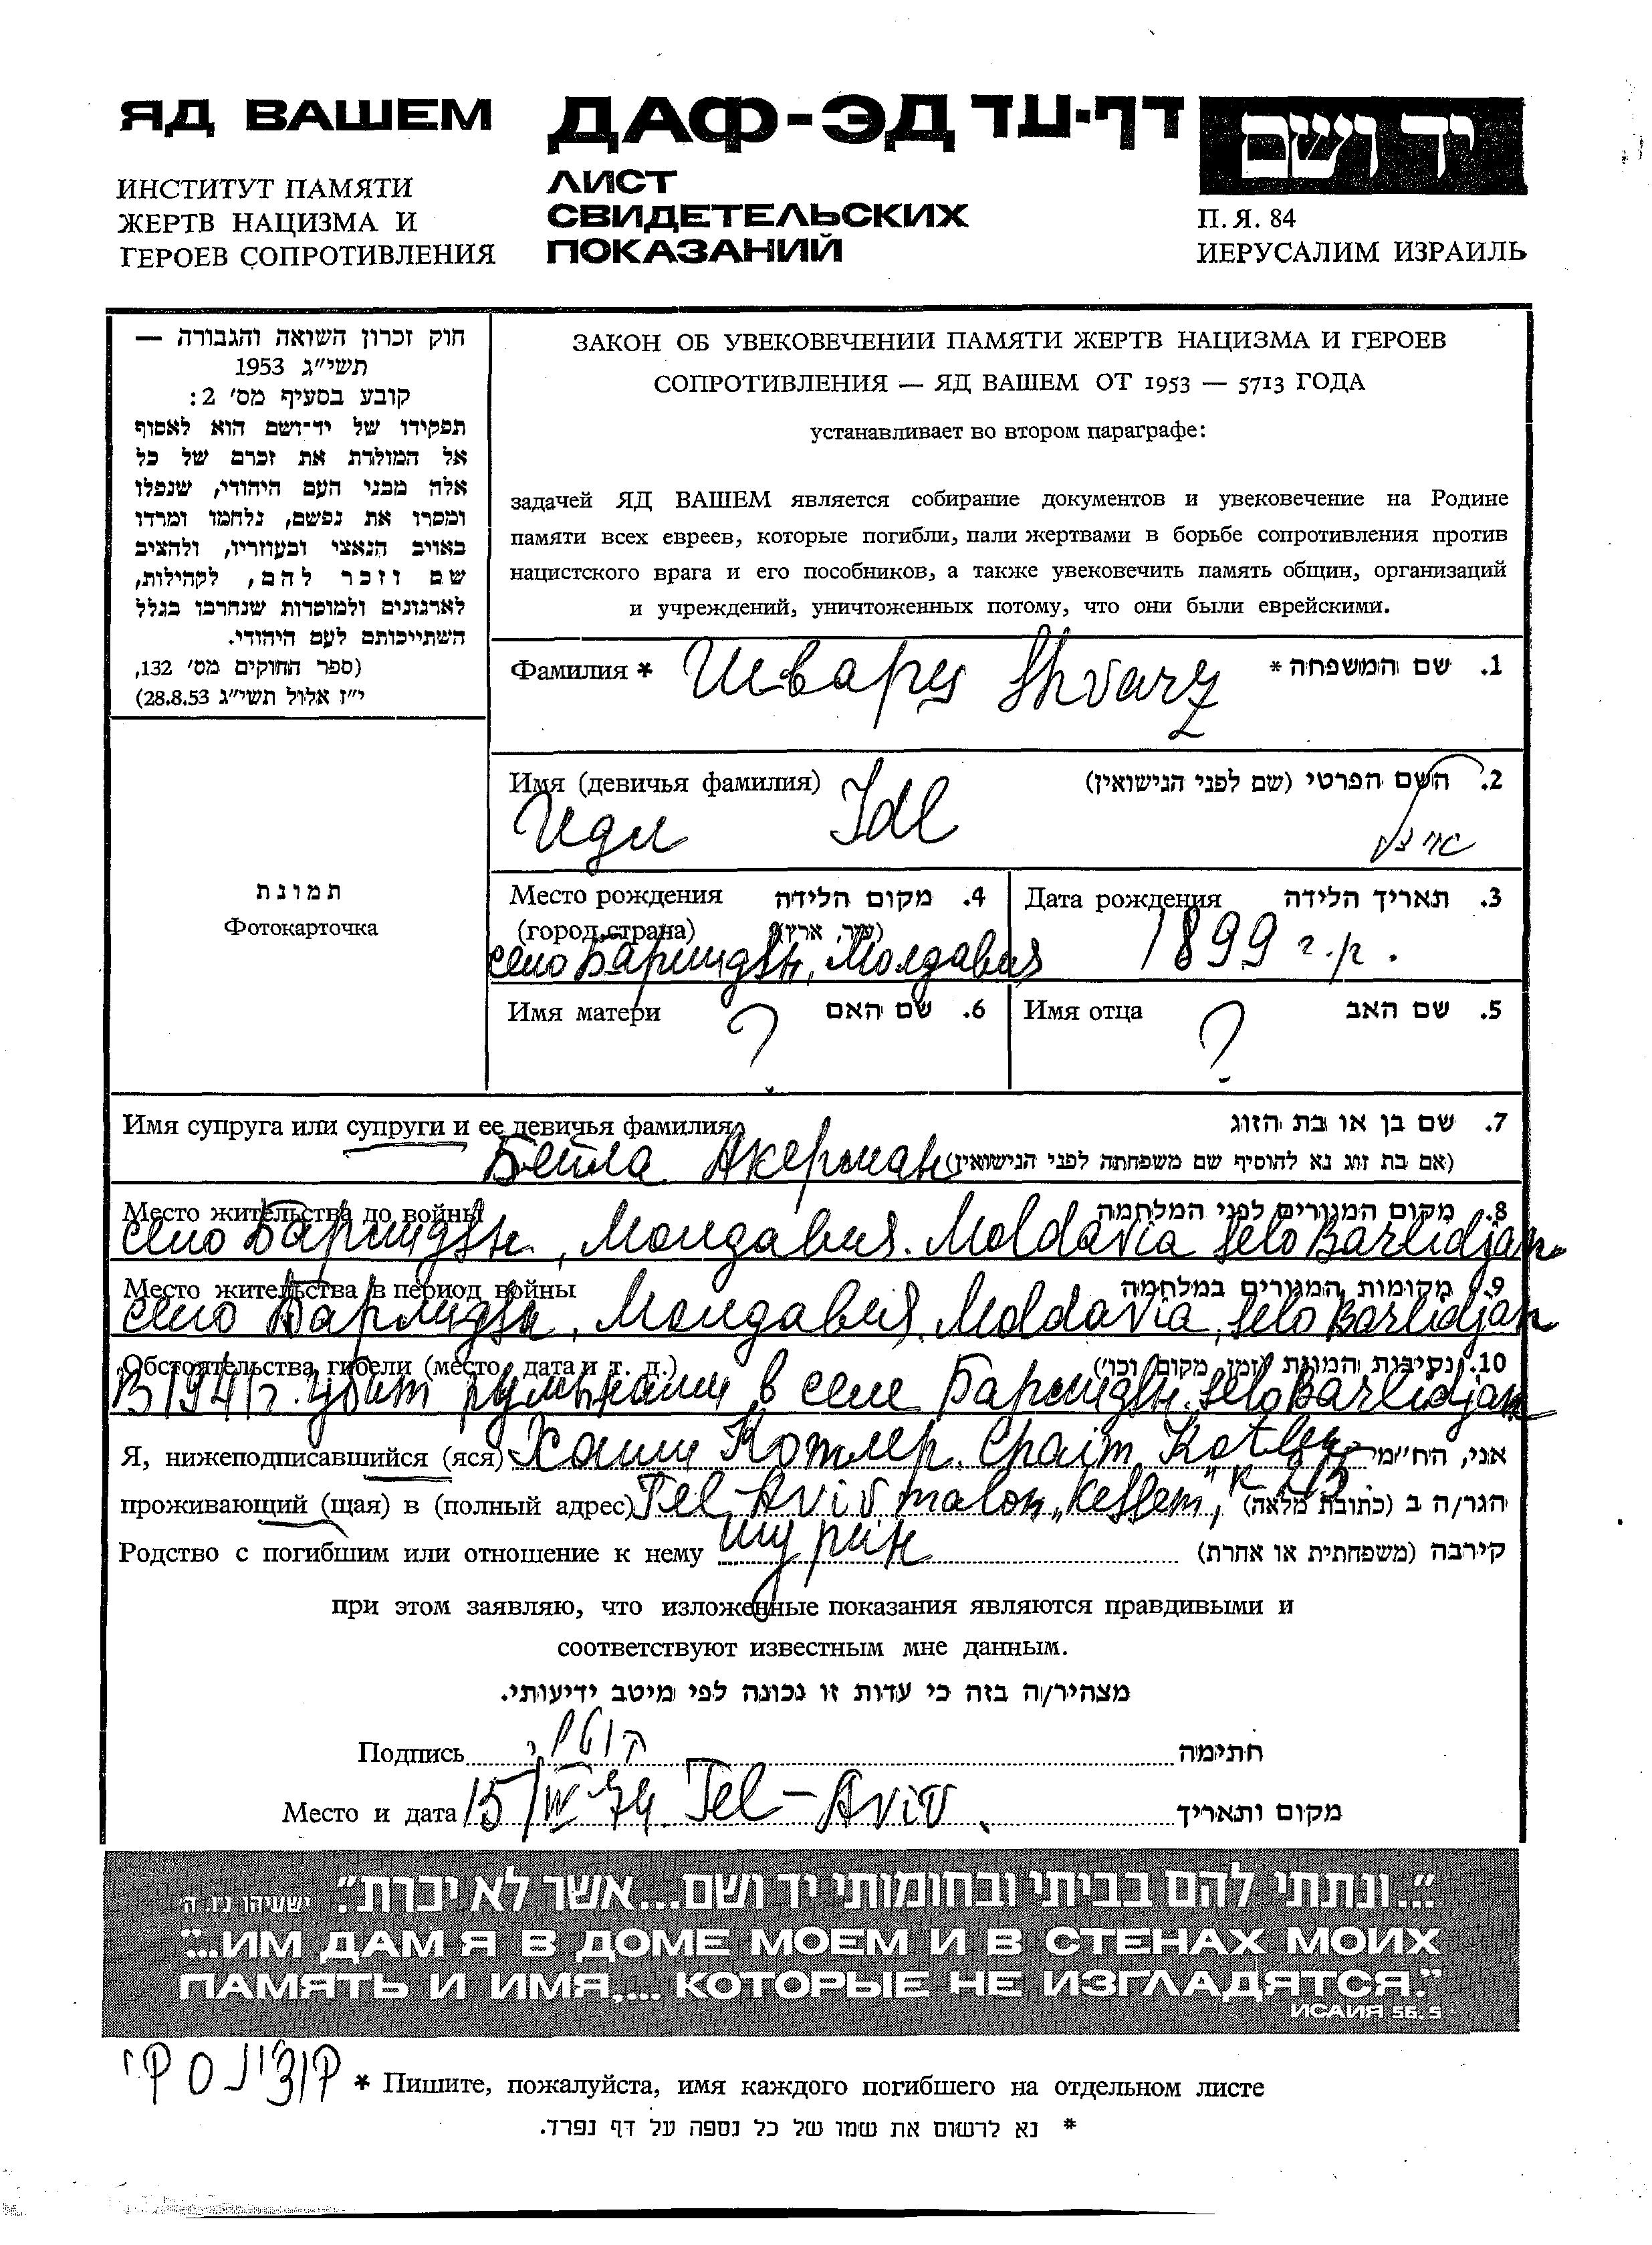 ЯД ВАШЕМ
ИНСТИТУТ ПАМЯТИ
ЖЕРТВ НАЦИЗМА И
ГЕРОЕВ СОПРОТИВЛЕНИЯ
ДАФ-ЭД דף-עד
ЛИСТ
СВИДЕТЕЛЬСКИХ
ПОКАЗАНИЙ
יד ושם
П. Я. 84
ИЕРУСАЛИМ ИЗРАИЛЬ
חוק זכרון השואה והגבורה —
תשי״ג 1953
קובע בסעיף מס׳ 2:
תפקידו של יד־ושם הוא לאסוף
אל המולדת את זכרם של כל
אלה מבני העם היהודי, שנפלו
ומסרו את נפשם, נלחמו ומרדו
באויב הנאצי ובעוזריו, ולהציב
שם וזכר להם, לקהילות,
לארגונים ולמוסדות שנחרבו בגלל
השתייכותם לעם היהודי.
(ספר החוקים מס׳ 132,
י״ז אלול תשי״ג 28.8.53)
ЗАКОН ОБ УВЕКОВЕЧЕНИИ ПАМЯТИ ЖЕРТВ НАЦИЗМА И ГЕРОЕВ
СОПРОТИВЛЕНИЯ — ЯД ВАШЕМ ОТ 1953 — 5713 ГОДА
устанавливает во втором параграфе:
задачей ЯД ВАШЕМ является собирание документов и увековечение на Родине
памяти всех евреев, которые погибли, пали жертвами в борьбе сопротивления против
нацистского врага и его пособников, а также увековечить память общин, организаций
и учреждений, уничтоженных потому, что они были еврейскими.
Фамилия * Шварц Shvarz 1. שם המשפחה *
Имя (девичья фамилия) 2. השם הפרטי (שם לפני הנישואין)
Идл Idl
תמונת
Фотокарточка
Место рождения 4. מקום הלידה
(город, страна) (עיר, ארץ)
село Барлидзян, Молдавия
Дата рождения 3. תאריך הלידה
1899 г.р.
Имя матери ? 6. שם האם
Имя отца ? 5. שם האב
Имя супруга или супруги и ее девичья фамилия 7. שם בן או בת הזוג
Бейла Акерман (אם בת זוג נא להוסיף שם משפחתה לפני הנישואין)
Место жительства до войны 8. מקום המגורים לפני המלחמה
село Барлидзян, Молдавия. Moldavia selo Barlidjan
Место жительства в период войны 9. מקומות המגורים במלחמה
село Барлидзян, Молдавия. Moldavia, selo Barlidjan
Обстоятельства гибели (место, дата и т. д.) 10. נסיבות המוות (זמן, מקום וכו׳)
В 1941г. убит румынами в селе Барлидзян. selo Barlidjan
Я, нижеподписавшийся (яся) Хаим Котлер. Chaim Kotler אני, הח״מ
проживающий (щая) в (полный адрес) Tel-Aviv malon „Kessem", к 213. הגר/ה ב (כתובת מלאה)
Родство с погибшим или отношение к нему шурин קירבה (משפחתית או אחרת)
при этом заявляю, что изложенные показания являются правдивыми и
соответствуют известным мне данным.
מצהיר/ה בזה כי עדות זו נכונה לפי מיטב ידיעותי.
Подпись חתימה
Место и дата 15/IV 74. Tel-Aviv. מקום ותאריך
"...ונתתי להם בביתי ובחומותי יד ושם...אשר לא יכרת". ישעיהו נ״ו. ה׳
"...ИМ ДАМ Я В ДОМЕ МОЕМ И В СТЕНАХ МОИХ
ПАМЯТЬ И ИМЯ,... КОТОРЫЕ НЕ ИЗГЛАДЯТСЯ."
ИСАИЯ 56. 5
* Пишите, пожалуйста, имя каждого погибшего на отдельном листе
* נא לרשום את שמו של כל נספה על דף נפרד.